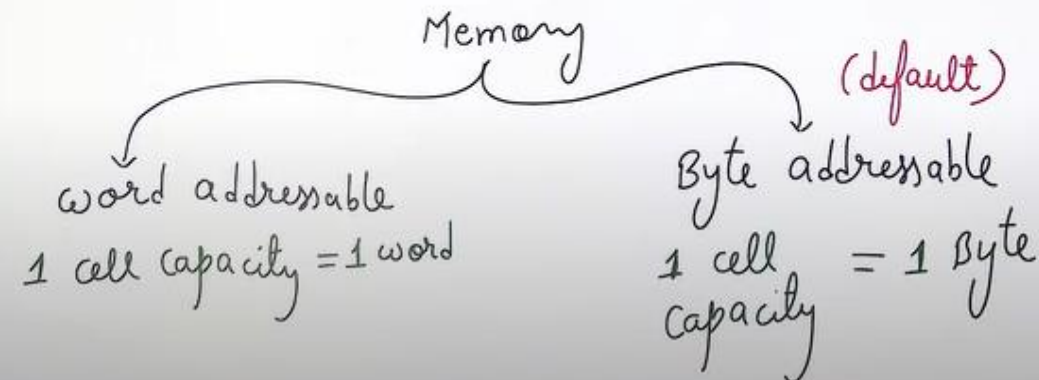 Memory
(default)
word addressable
1 cell capacity = 1 word
Byte addressable
1 cell = 1 Byte
capacity